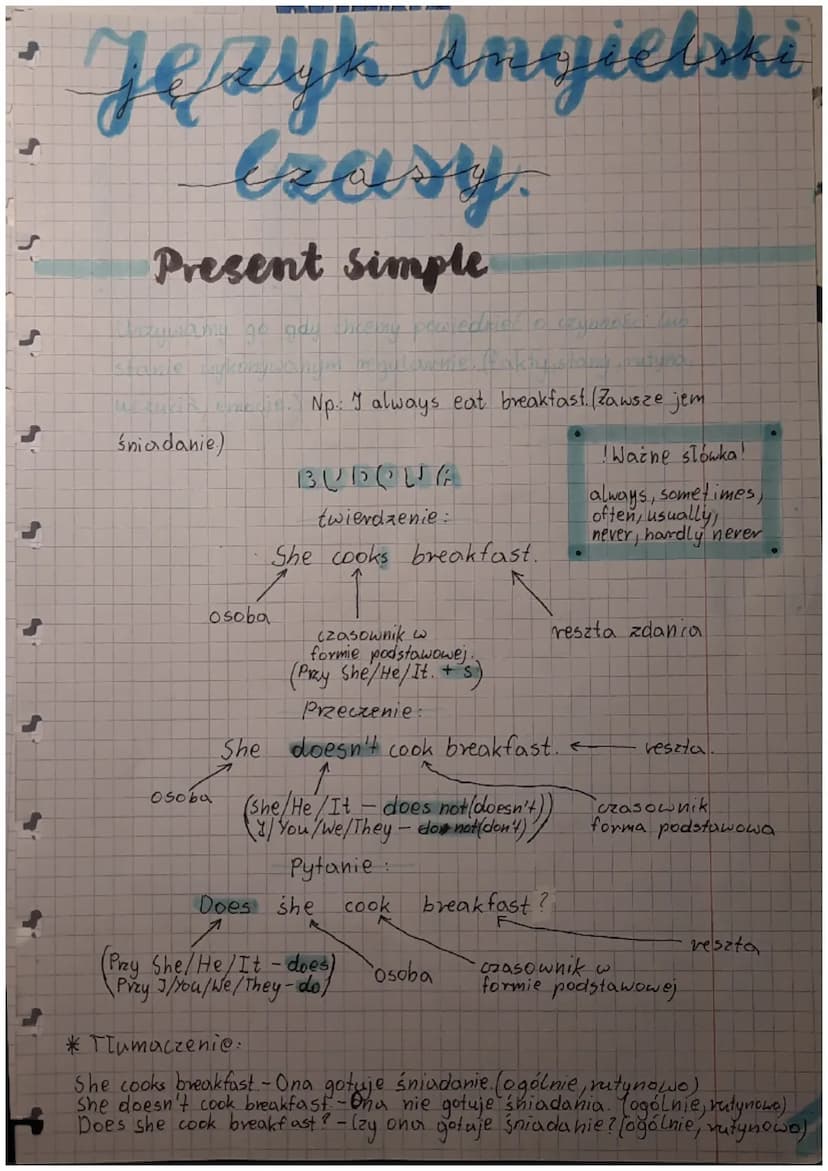 Język Angielski
język Angielski
Czasy.
czasy.
Present simple
Używamy go gdy chcemy powiedzieć o czynności lub
stanie wykonywanym regularnie. (fakty, stany, rutyna,
uczucia, emocje.) Np.: I always eat breakfast. (Zawsze jem
śniadanie.)
!Ważne słówka!
always, sometimes,
often, usually,
never, hardly never
BUDOWA
twierdzenie:
She cooks breakfast.
osoba
czasownik w
formie podstawowej.
(Przy She/He/It. + s)
reszta zdania
Przeczenie:
She doesn't cook breakfast. reszta.
osoba
(She/He/It - does not (doesn't))
(I/You/We/They - do not (don't))
czasownik
forma podstawowa
Pytanie:
Does she cook breakfast?
(Przy She/He/It - does)
(Przy I/You/We/They - do)
osoba
czasownik w
formie podstawowej
reszta
* Tłumaczenie:
She cooks breakfast - Ona gotuje śniadanie. (ogólnie, rutynowo)
She doesn't cook breakfast - Ona nie gotuje śniadania. (ogólnie, rutynowo)
Does she cook breakfast? - Czy ona gotuje śniadanie? (ogólnie, rutynowo)